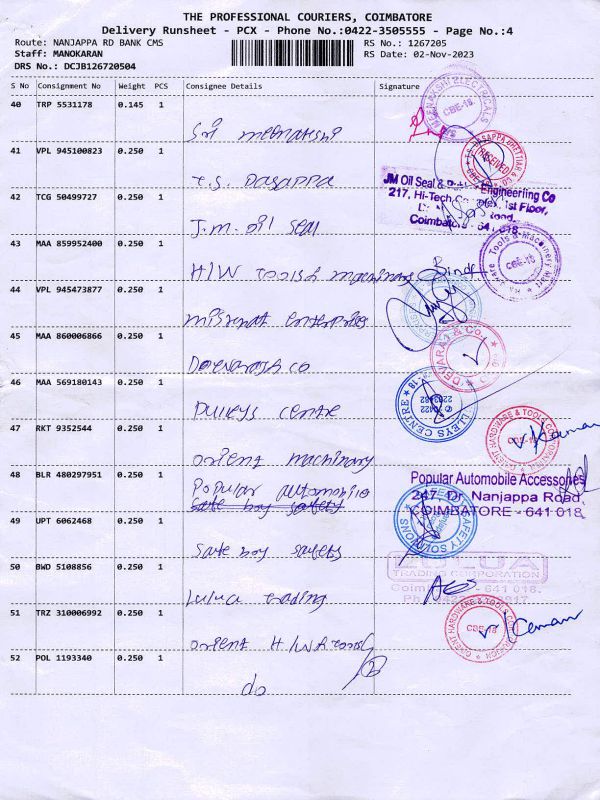 THE PROFESSIONAL COURIERS, COIMBATORE
Delivery Runsheet - PCX - Phone No.:0422-3505555 - Page No.:4
Route: NANJAPPA RD BANK CMS
RS No.: 1267205
Staff: MANOKARAN
RS Date: 02-Nov-2023
DRS No.: DCJB126720504
S No Consignment No Weight PCS Consignee Details Signature
40 TRP 5531178 0.145 1
Sri meenatshi
41 VPL 945100823 0.250 1
T.S. Dasappa
RECEIVED
42 TCG 50499727 0.250 1
JM Oil Seal & Engineering Co
217, Hi-Tech 1st Floor,
Coimbatore - 641 018
J.m. oil seal
43 MAA 859952400 0.250 1
H/W tools & machinary
44 VPL 945473877 0.250 1
enterprises
45 MAA 860066866 0.250 1
DEVARAJ & Co.
Devaraja co
46 MAA 569180143 0.250 1
Pulleys centre
47 RKT 9352544 0.250 1
ORIENT HARDWARE & TOOLS CORPORATION
CBE-18
Kannan
orient machinary
48 BLR 480297951 0.250 1
Popular Automobile Accessories
247, Dr. Nanjappa Road,
COIMBATORE - 641 018
Popular automobile
safe boy safety
49 UPT 6062468 0.250 1
SAFETY SOLUTIONS
safe boy safety
50 BWD 5108856 0.250 1
LULUA
TRADING CORPORATION
Coimbatore - 641 018.
Lulua trading
51 TRZ 310006992 0.250 1
ORIENT HARDWARE & TOOLS CORPORATION
CBE-18
Kannan
orient H/W & tools
52 POL 1193340 0.250 1
do